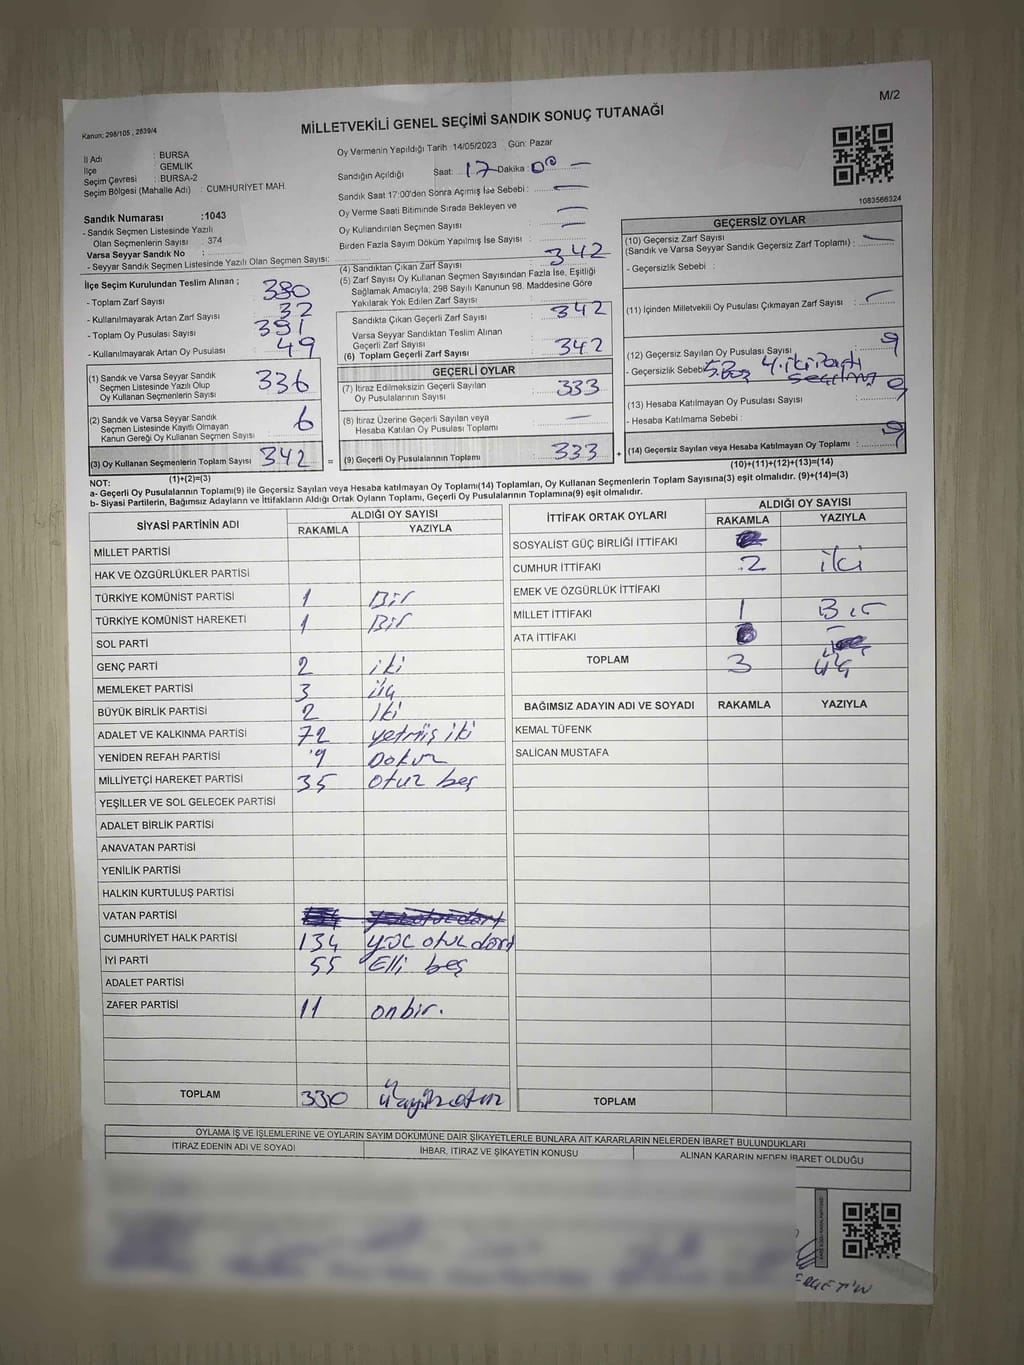 M/2
Kanun; 298/105 , 2839/4
MİLLETVEKİLİ GENEL SEÇİMİ SANDIK SONUÇ TUTANAĞI
İl Adı : BURSA
İlçe : GEMLİK
Seçim Çevresi : BURSA-2
Seçim Bölgesi (Mahalle Adı) : CUMHURİYET MAH
Sandık Numarası :1043
- Sandık Seçmen Listesinde Yazılı
Olan Seçmenlerin Sayısı : 374
Varsa Seyyar Sandık No :
- Seyyar Sandık Seçmen Listesinde Yazılı Olan Seçmen Sayısı:
Oy Vermenin Yapıldığı Tarih :14/05/2023 Gün: Pazar
Sandığın Açıldığı Saat: 17 Dakika: 00 —
Sandık Saat 17:00'den Sonra Açımış İse Sebebi : —
Oy Verme Saati Bitiminde Sırada Bekleyen ve —
Oy Kullandırılan Seçmen Sayısı : —
Birden Fazla Sayım Döküm Yapılmış İse Sayısı :
1083566324
İlçe Seçim Kurulundan Teslim Alınan ;
- Toplam Zarf Sayısı : 380
- Kullanılmayarak Artan Zarf Sayısı : 32
- Toplam Oy Pusulası Sayısı : 391
- Kullanılmayarak Artan Oy Pusulası : 49
(1) Sandık ve Varsa Seyyar Sandık
Seçmen Listesinde Yazılı Olup
Oy Kullanan Seçmenlerin Sayısı : 336
(2) Sandık ve Varsa Seyyar Sandık
Seçmen Listesinde Kayıtlı Olmayan
Kanun Gereği Oy Kullanan Seçmen Sayısı : 6
(3) Oy Kullanan Seçmenlerin Toplam Sayısı : 342
(1)+(2)=(3)
(4) Sandıktan Çıkan Zarf Sayısı : 342
(5) Zarf Sayısı Oy Kullanan Seçmen Sayısından Fazla İse, Eşitliği
Sağlamak Amacıyla; 298 Sayılı Kanunun 98. Maddesine Göre
Yakılarak Yok Edilen Zarf Sayısı :
Sandıkta Çıkan Geçerli Zarf Sayısı : 342
Varsa Seyyar Sandıktan Teslim Alınan
Geçerli Zarf Sayısı :
(6) Toplam Geçerli Zarf Sayısı : 342
GEÇERLİ OYLAR
(7) İtiraz Edilmeksizin Geçerli Sayılan
Oy Pusulalarının Sayısı : 333
(8) İtiraz Üzerine Geçerli Sayılan veya
Hesaba Katılan Oy Pusulası Toplamı : —
= (9) Geçerli Oy Pusulalarının Toplamı : 333
GEÇERSİZ OYLAR
(10) Geçersiz Zarf Sayısı
(Sandık ve Varsa Seyyar Sandık Geçersiz Zarf Toplamı) : —
- Geçersizlik Sebebi :
(11) İçinden Milletvekili Oy Pusulası Çıkmayan Zarf Sayısı : —
(12) Geçersiz Sayılan Oy Pusulası Sayısı : 9
- Geçersizlik Sebebi 5.Boş 4.iki Parti
(13) Hesaba Katılmayan Oy Pusulası Sayısı :
- Hesaba Katılmama Sebebi :
+ (14) Geçersiz Sayılan veya Hesaba Katılmayan Oy Toplamı : 9
(10)+(11)+(12)+(13)=(14)
NOT:
a- Geçerli Oy Pusulalarının Toplamı(9) ile Geçersiz Sayılan veya Hesaba katılmayan Oy Toplamı(14) Toplamları, Oy Kullanan Seçmenlerin Toplam Sayısına(3) eşit olmalıdır. (9)+(14)=(3)
b- Siyasi Partilerin, Bağımsız Adayların ve İttifakların Aldığı Ortak Oyların Toplamı, Geçerli Oy Pusulalarının Toplamına(9) eşit olmalıdır.
SİYASİ PARTİNİN ADI ALDIĞI OY SAYISI
RAKAMLA YAZIYLA
MİLLET PARTİSİ
HAK VE ÖZGÜRLÜKLER PARTİSİ
TÜRKİYE KOMÜNİST PARTİSİ 1 Bir
TÜRKİYE KOMÜNİST HAREKETİ 1 Bir
SOL PARTİ
GENÇ PARTİ 2 iki
MEMLEKET PARTİSİ 3 üç
BÜYÜK BİRLİK PARTİSİ 2 İki
ADALET VE KALKINMA PARTİSİ 72 yetmiş iki
YENİDEN REFAH PARTİSİ 9 Dokuz
MİLLİYETÇİ HAREKET PARTİSİ 35 otuz beş
YEŞİLLER VE SOL GELECEK PARTİSİ
ADALET BİRLİK PARTİSİ
ANAVATAN PARTİSİ
YENİLİK PARTİSİ
HALKIN KURTULUŞ PARTİSİ
VATAN PARTİSİ
CUMHURİYET HALK PARTİSİ 134 yüz otuz dört
İYİ PARTİ 55 Elli beş
ADALET PARTİSİ
ZAFER PARTİSİ 11 onbir.
TOPLAM 330 üçyüzotuz
İTTİFAK ORTAK OYLARI ALDIĞI OY SAYISI
RAKAMLA YAZIYLA
SOSYALİST GÜÇ BİRLİĞİ İTTİFAKI
CUMHUR İTTİFAKI 2 iki
EMEK VE ÖZGÜRLÜK İTTİFAKI
MİLLET İTTİFAKI 1 Bir
ATA İTTİFAKI —
TOPLAM 3 üç
BAĞIMSIZ ADAYIN ADI VE SOYADI RAKAMLA YAZIYLA
KEMAL TÜFENK
SALİCAN MUSTAFA
TOPLAM
OYLAMA İŞ VE İŞLEMLERİNE VE OYLARIN SAYIM DÖKÜMÜNE DAİR ŞİKAYETLERLE BUNLARA AİT KARARLARIN NELERDEN İBARET BULUNDUKLARI
İTİRAZ EDENİN ADI VE SOYADI İHBAR, İTİRAZ VE ŞİKAYETİN KONUSU ALINAN KARARIN NEDEN İBARET OLDUĞU